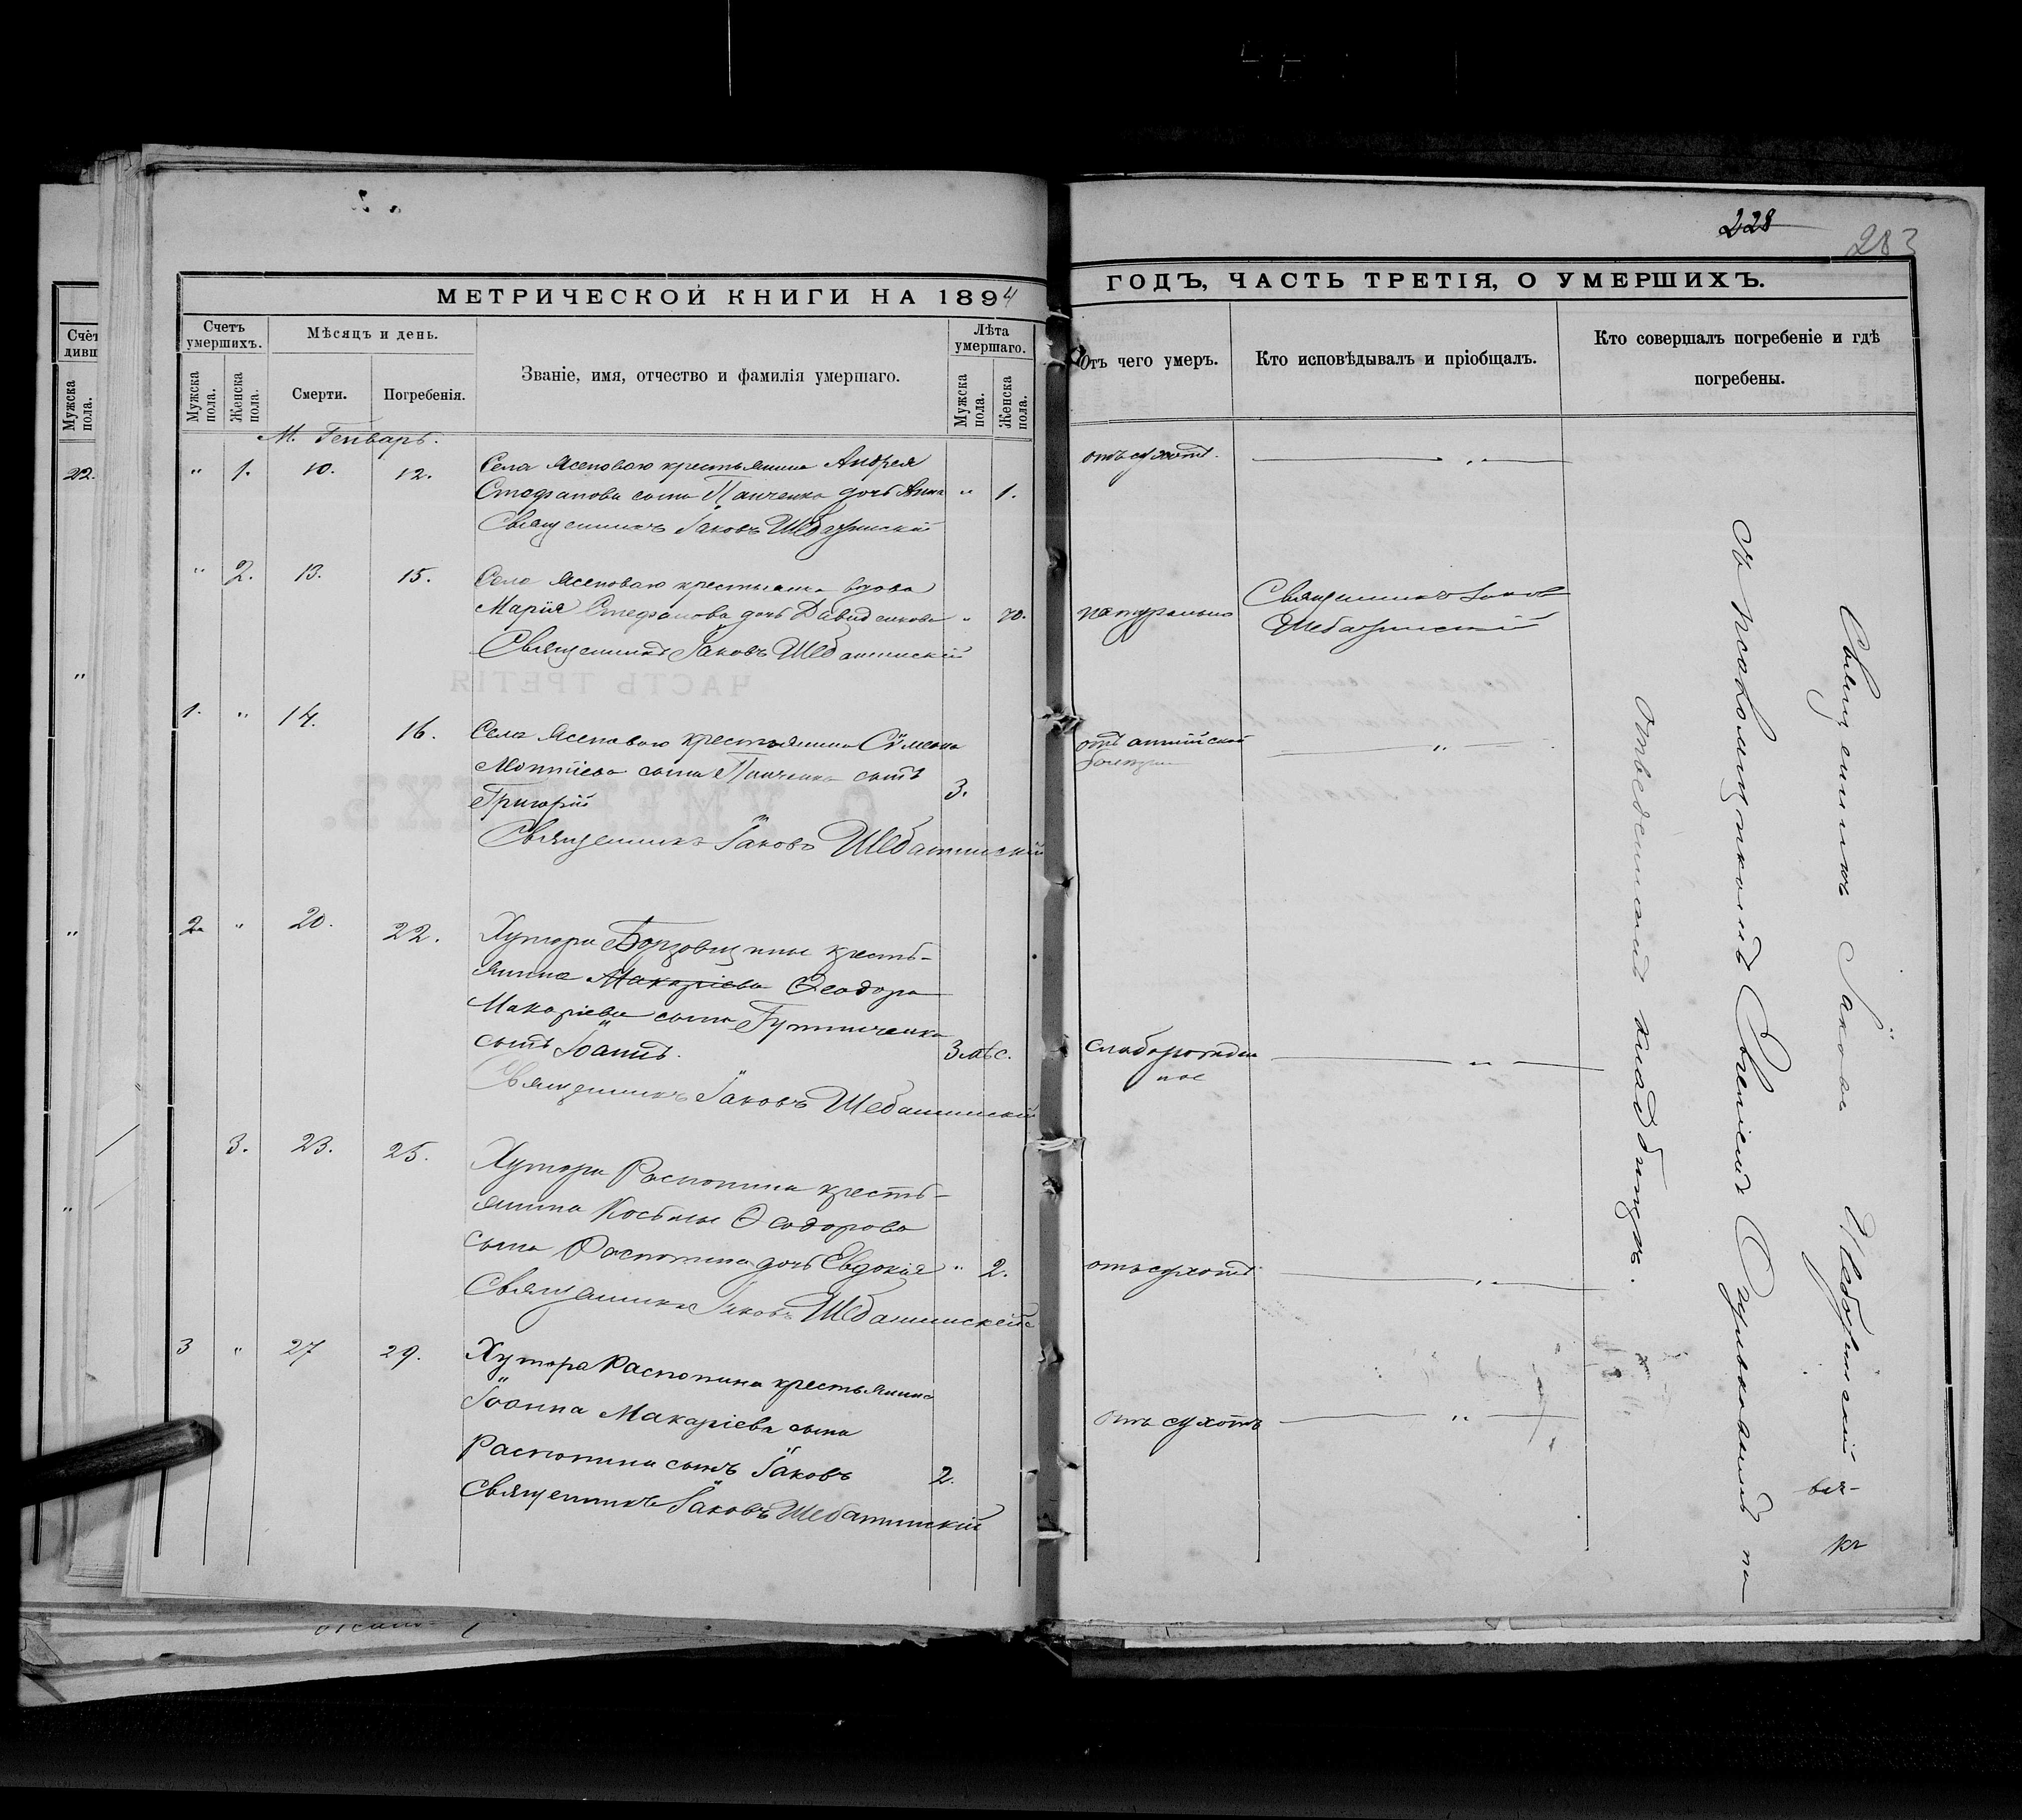 228
283
МЕТРИЧЕСКОЙ КНИГИ НА 1894
ГОДЪ, ЧАСТЬ ТРЕТІЯ, О УМЕРШИХЪ.
Счетъ умершихъ.
Мужска пола.
Женска пола.
Мѣсяцъ и день.
Смерти.
Погребенія.
Званіе, имя, отчество и фамилія умершаго.
Лѣта умершаго.
Мужска пола.
Женска пола.
Отъ чего умеръ.
Кто исповѣдывалъ и пріобщалъ.
Кто совершалъ погребеніе и гдѣ
погребены.
М. Генварь.
" 1. 10. 12. Села Ясеноваго крестьянина Андрея
Стефанова сына Панченка дочь Анна " 1. отъ сухотъ. "
Священникъ Іаковъ Шебатинскій
" 2. 13. 15. Села Ясеноваго крестьянка вдова
Марія Стефанова дочь Давиденкова " 70. натурально Священникъ Іаковъ
Шебатинскій
Священникъ Іаковъ Шебатинскій
1. " 14. 16. Села Ясеноваго крестьянина Сѵмеона
сына Панченка сынъ отъ англійской "
Григорій 3.
Священникъ Іаковъ Шебатинскій
2. " 20. 22. Хутора Борзовщины кресть-
янина Макаріева Ѳеодора
Макаріева сына
сынъ Іоаннъ. 3 мѣс. "
Священникъ Іаковъ Шебатинскій
3. 23. 25. Хутора Распопина кресть-
янина Космы Ѳеодорова
сына Распопина дочь Евдокія " 2. отъ сухотъ "
Священникъ Іаковъ Шебатинскій
3 " 27 29. Хутора Распопина крестьянина
Іоанна Макаріева сына
Распопина сынъ Іаковъ 2. отъ сухотъ "
Священникъ Іаковъ Шебатинскій
Священникъ Іаковъ Шебатинскій
съ псаломщикомъ Евгеніемъ на
отведенномъ кладбищѣ.
Счет
дивш
Мужска пола.
22.
"
"
"